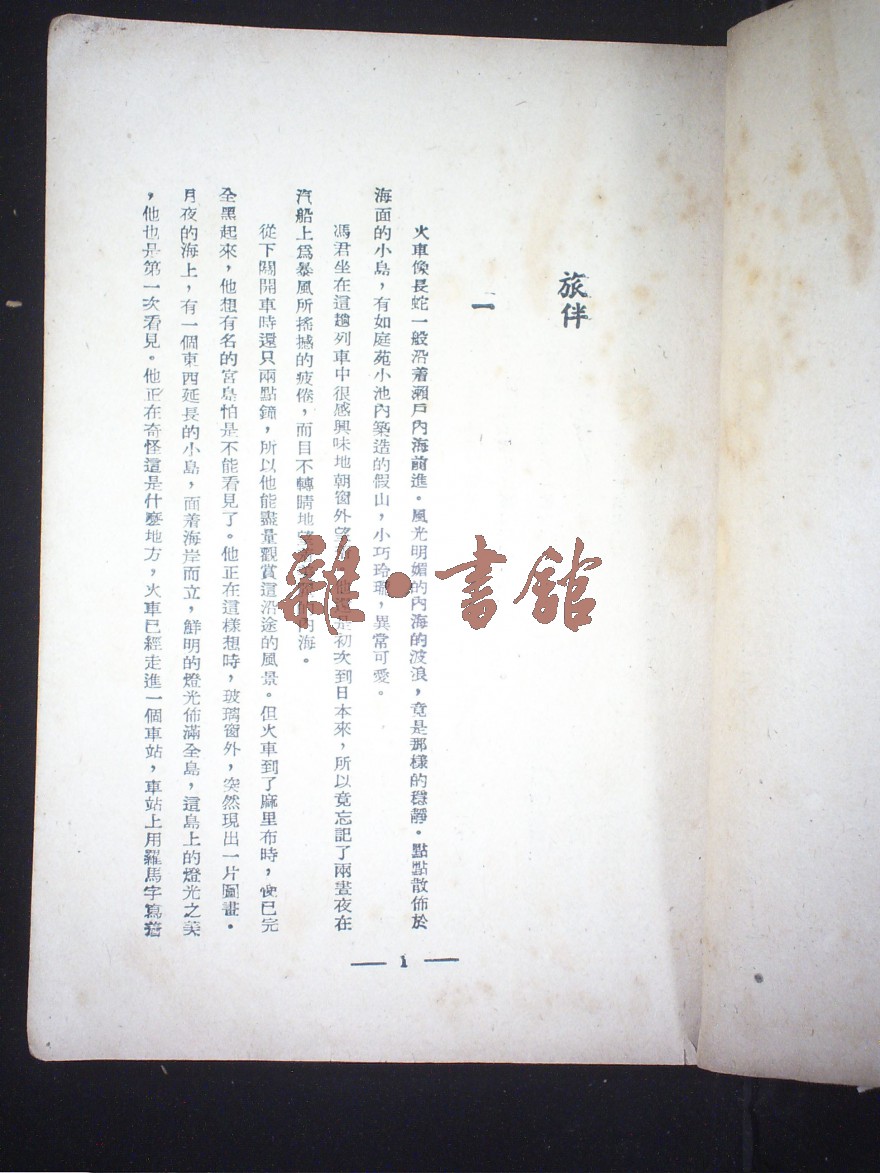 旅伴
一
火車像長蛇一般沿着瀨戶內海前進。風光明媚的內海的波浪，竟是那樣的穩靜。點點散佈於
海面的小島，有如庭苑小池內築造的假山，小巧玲瓏，異常可愛。
馮君坐在這趟列車中很感興味地朝窗外望 他 是初次到日本來，所以竟忘記了兩晝夜在
汽船上爲暴風所搖撼的疲倦，而目不轉睛地 的內海。
從下關開車時還只兩點鐘，所以他能盡量觀賞這沿途的風景。但火車到了麻里布時，便已完
全黑起來，他想有名的宮島怕是不能看見了。他正在這樣想時，玻璃窗外，突然現出一片圖畫。
月夜的海上，有一個東西延長的小島，面着海岸而立，鮮明的燈光佈滿全島，這島上的燈光之美
，他也是第一次看見。他正在奇怪這是什麼地方，火車已經走進一個車站，車站上用羅馬字寫着
— 1 —
雜·書館